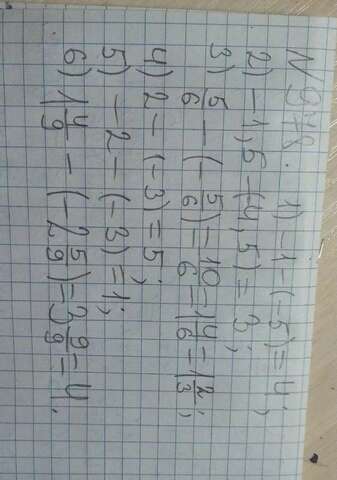 N978. 1) -1-(-5)=4;
2) -1,5-(-4,5)=3;
3) 5/6 - (-5/6)=10/6=1 4/6=1 2/3;
4) 2-(-3)=5;
5) -2-(-3)=1;
6) 1 4/9 - (-2 5/9)=3 9/9=4.